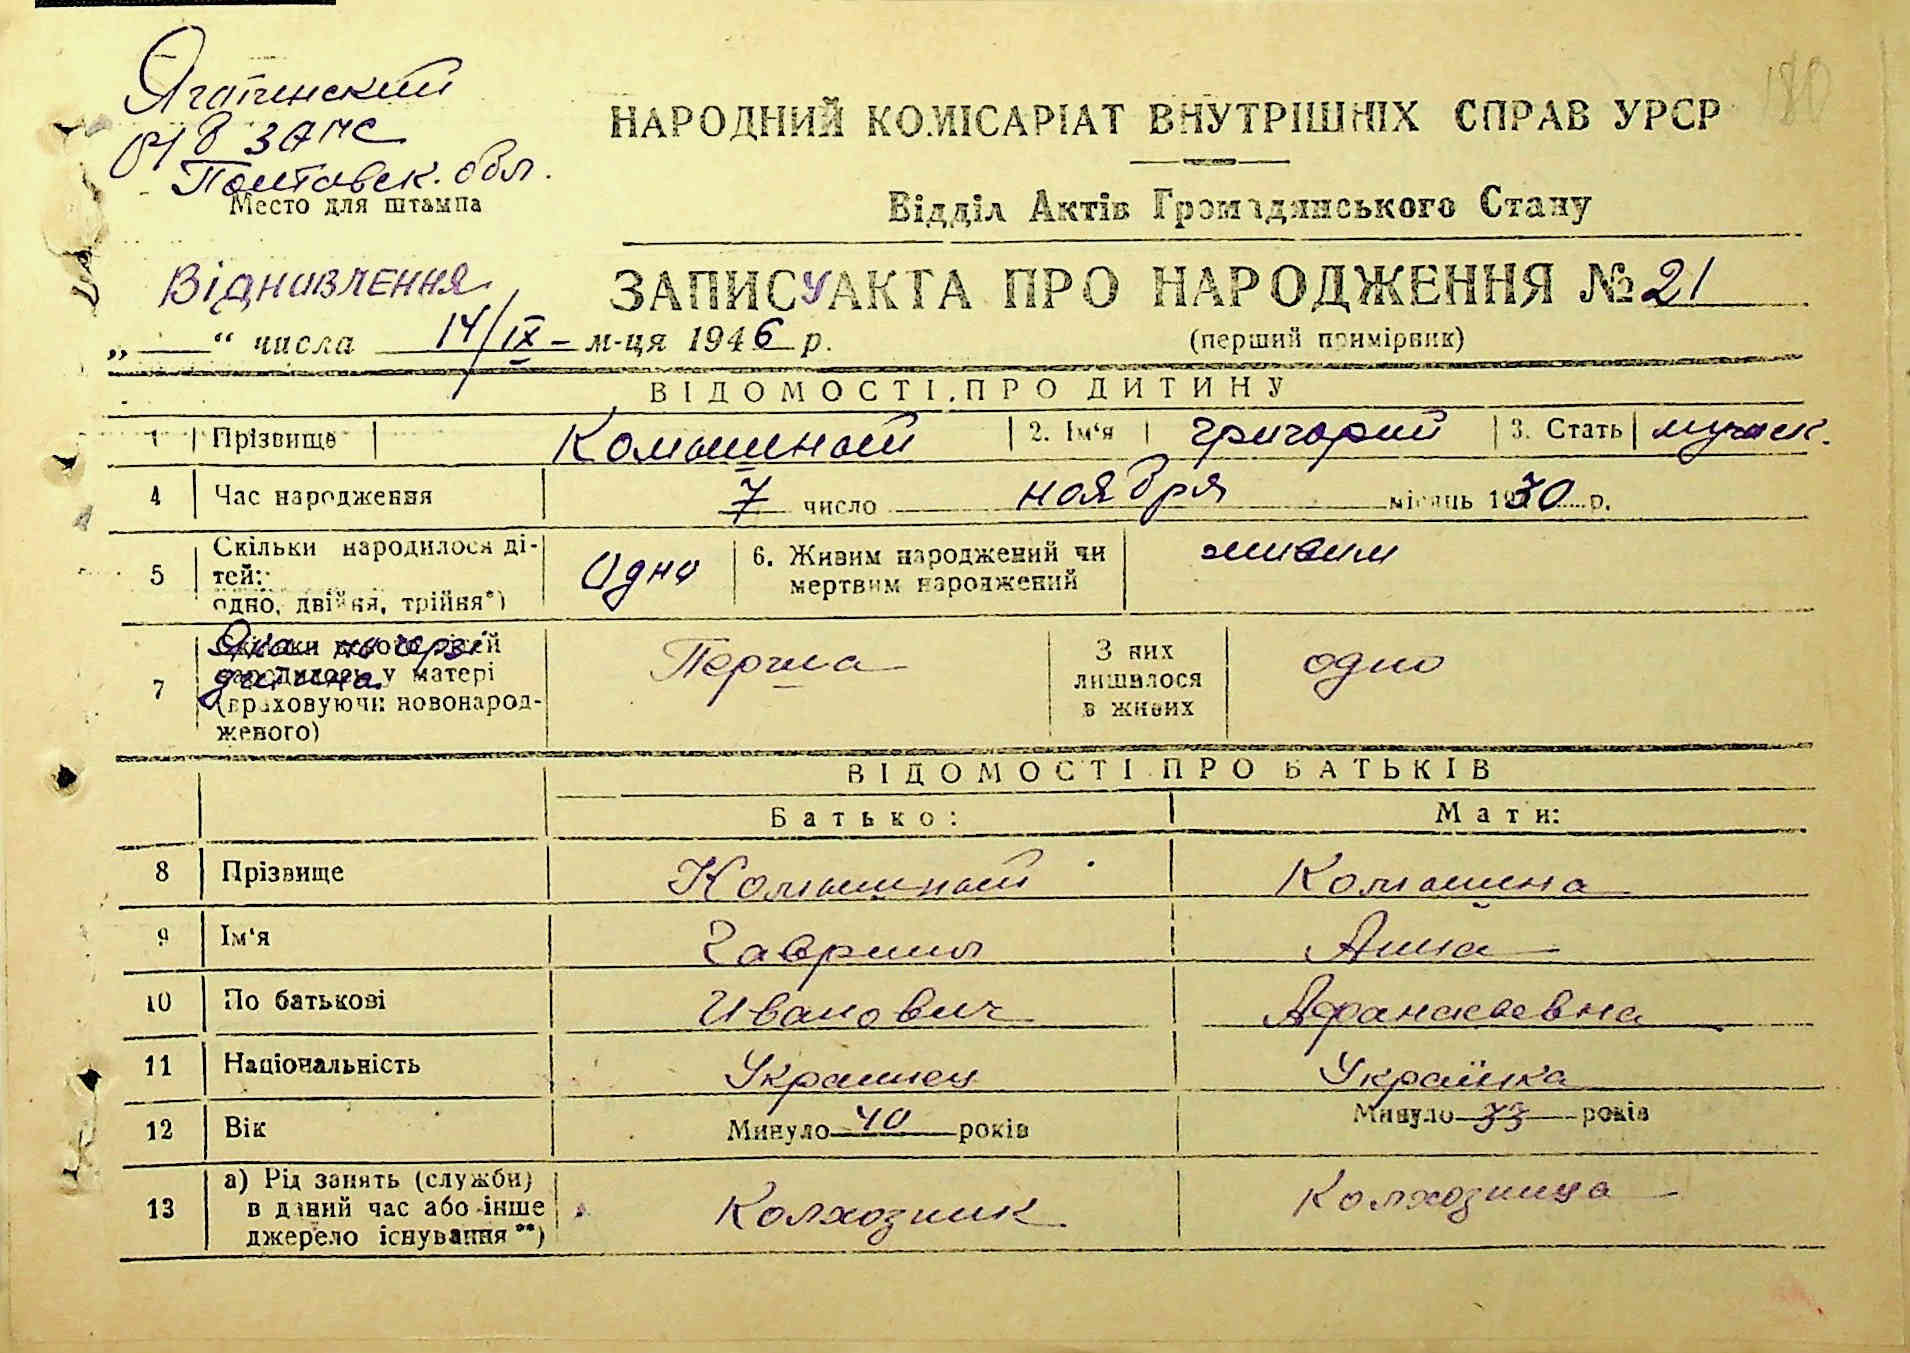 Яготинский
р/в ЗАГС
Полтавск. обл.
Место для штампа
180
НАРОДНИЙ КОМІСАРІАТ ВНУТРІШНІХ СПРАВ УРСР
Відділ Актів Громадянського Стану
Відновлення
ЗАПИСУ АКТА ПРО НАРОДЖЕННЯ № 21
„ — “ числа 14/IX – м-ця 1946 р.
(перший примірник)
ВІДОМОСТІ ПРО ДИТИНУ
1 Прізвище 2. Ім‘я Григорий 3. Стать мужск.
4 Час народження 7 число ноября місяць 1930 р.
5 Скільки народилося ді-
тей:
одно, двійня, трійня*) Одно
6. Живим народжений чи
мертвим народжений живим
7 Яка по черзі
дитина
Скільки всього дітей
народилось у матері
(враховуючи новонарод-
женого) Перша
З них
лишилося
в живих одно
ВІДОМОСТІ ПРО БАТЬКІВ
Батько: Мати:
8 Прізвище
9 Ім‘я Гаврило Анна
10 По батькові Иванович Афанасьевна
11 Національність Украинец Українка
12 Вік Минуло 40 років Минуло 33 років
13 а) Рід занять (служби)
в даний час або інше
джерело існування**) Колхозник Колхозница